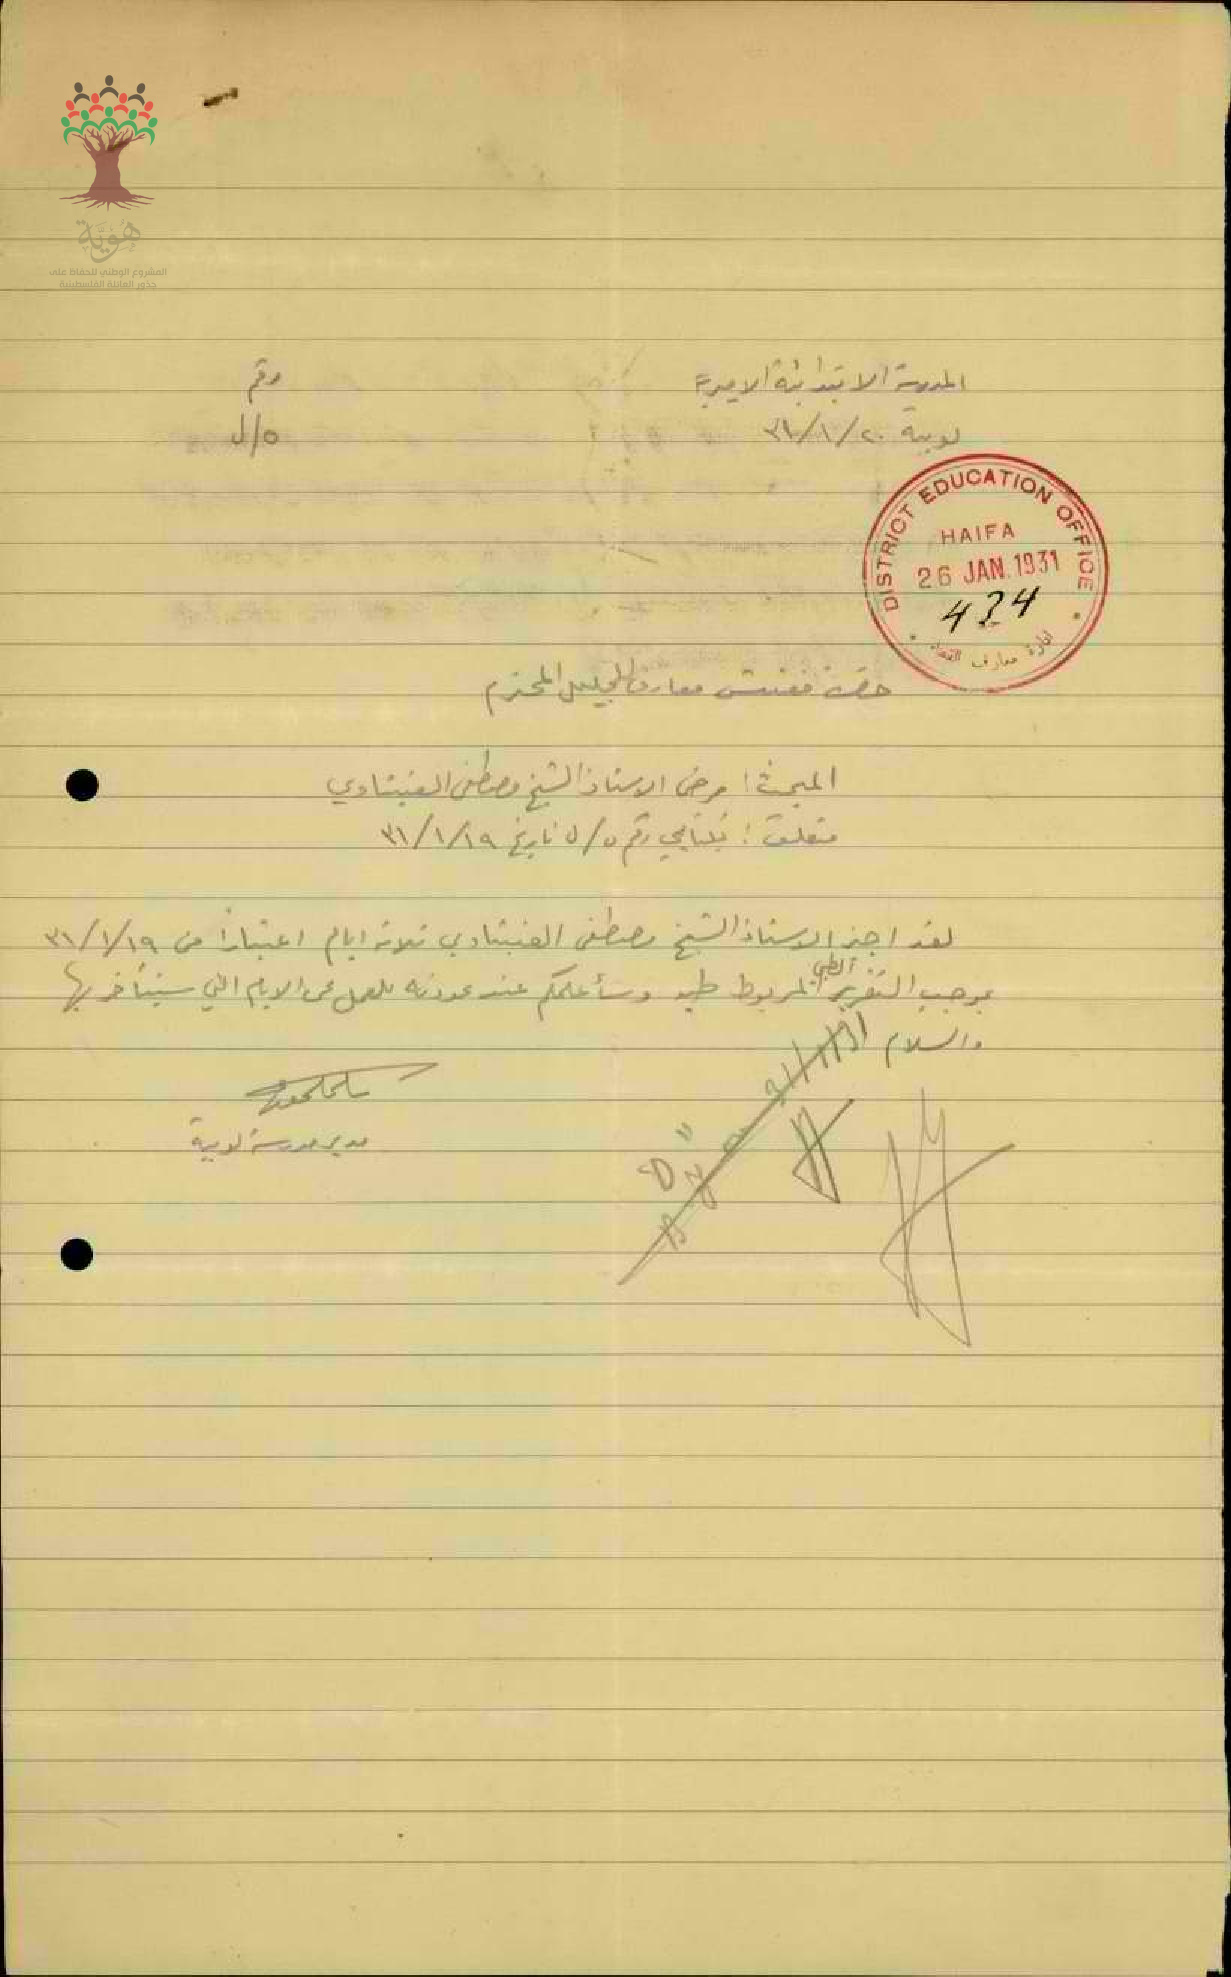 هُوِيَّة
المشروع الوطني للحفاظ على
جذور العائلة الفلسطينية
المدرسة الابتدائية الاميرية
رقم
لوبية ٢٠/١/٣١
٥/ل
DISTRICT EDUCATION OFFICE
HAIFA
26 JAN. 1931
434
ادارة معارف
حضرة مفتش معارف الجليل المحترم
المبحث: مرض الاستاذ الشيخ مصطفى
متعلق: بكتابي رقم ٥/ل تاريخ ١٩/١/٣١
لقد اجيز الاستاذ الشيخ مصطفى ثلاثة ايام اعتباراً من ١٩/١/٣١
بموجب التقرير الطبي المربوط طيه وسأعلمكم عند عودته للعمل عن الايام التي سيتأخر بها
والسلام
مدير مدرسة لوبية